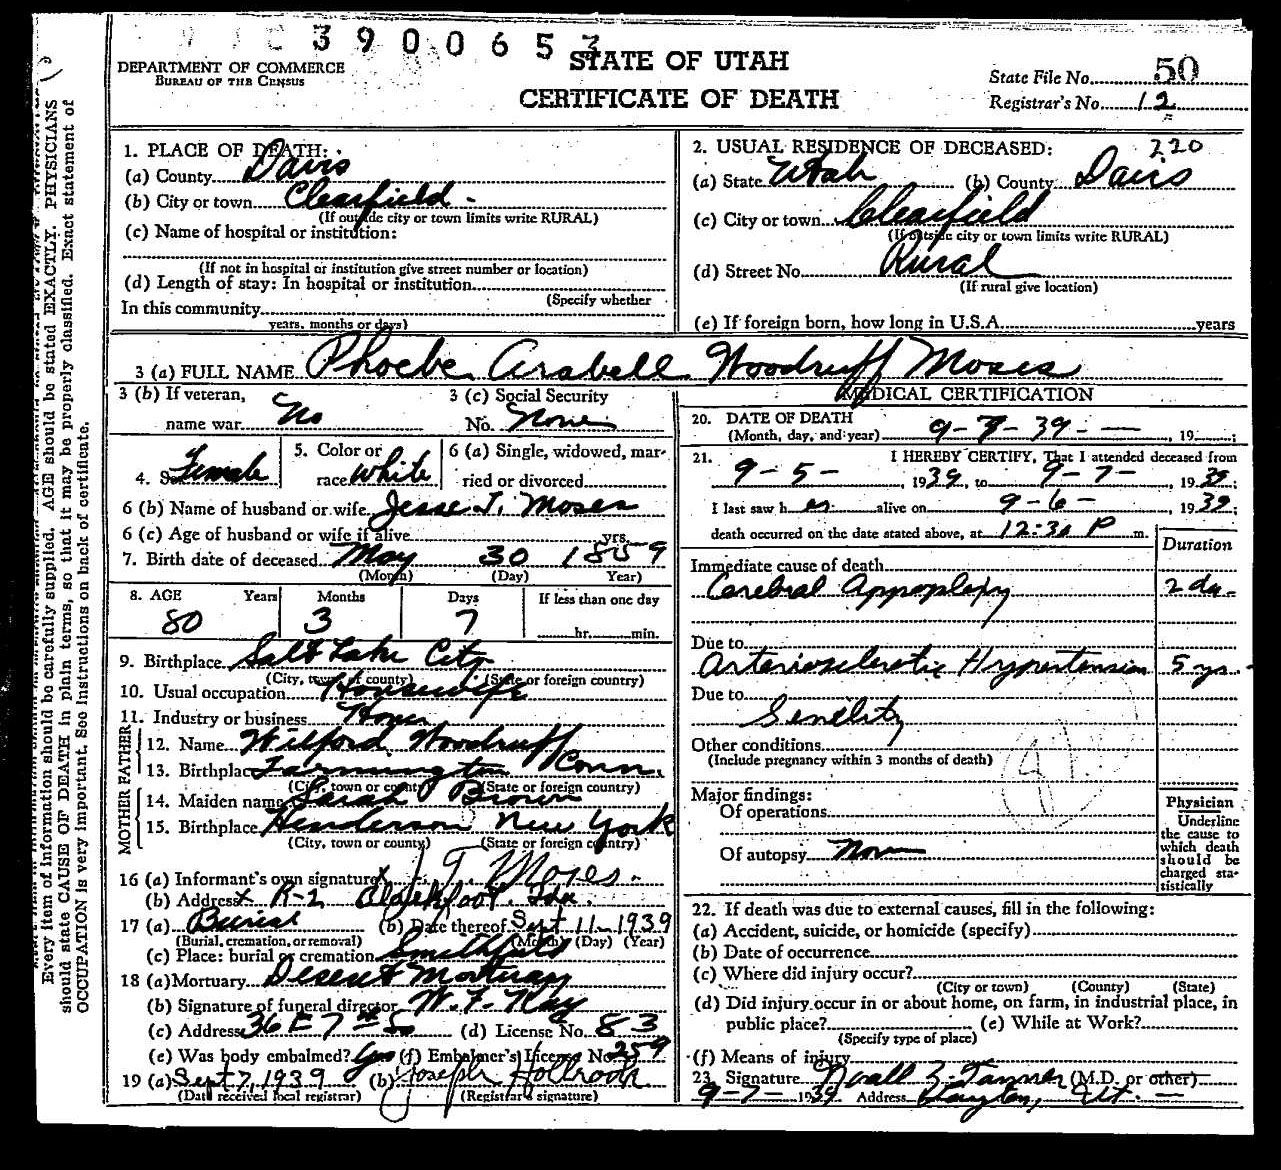 3900653
STATE OF UTAH
CERTIFICATE OF DEATH
DEPARTMENT OF COMMERCE
BUREAU OF THE CENSUS
State File No. 50
Registrar's No. 12
Every item of information should be carefully supplied. AGE should be stated EXACTLY. PHYSICIANS
should state CAUSE OF DEATH in plain terms, so that it may be properly classified. Exact statement of
OCCUPATION is very important. See instructions on back of certificate.
1. PLACE OF DEATH:
(a) County Davis
(b) City or town Clearfield
(If outside city or town limits write RURAL)
(c) Name of hospital or institution:
(If not in hospital or institution give street number or location)
(d) Length of stay: In hospital or institution
(Specify whether
In this community
years, months or days)
2. USUAL RESIDENCE OF DECEASED: 220
(a) State Utah (b) County Davis
(c) City or town Clearfield
(If outside city or town limits write RURAL)
(d) Street No. Rural
(If rural give location)
(e) If foreign born, how long in U.S.A. years
3 (a) FULL NAME Phoebe Arabell Woodruff Moses
3 (b) If veteran, name war No
3 (c) Social Security No. None
4. Sex Female
5. Color or race White
6 (a) Single, widowed, married or divorced
6 (b) Name of husband or wife Jesse T. Moses
6 (c) Age of husband or wife if alive yrs.
7. Birth date of deceased May 30 1859
(Month) (Day) Year)
8. AGE Years Months Days If less than one day
80 3 7 hr. min.
9. Birthplace Salt Lake City
(City, town or county) (State or foreign country)
10. Usual occupation Housewife
11. Industry or business Home
FATHER
12. Name Wilford Woodruff
13. Birthplace Farmington Conn.
(City, town or county) (State or foreign country)
MOTHER
14. Maiden name Sarah Brown
15. Birthplace Henderson New York
(City, town or county) (State or foreign country)
16 (a) Informant's own signature x J T Moses
(b) Address x R-2 Blackfoot, Ida.
17 (a) Burial (b) Date thereof Sept 11-1939
(Burial, cremation, or removal) (Month) (Day) (Year)
(c) Place: burial or cremation Smithfield
18 (a) Mortuary Deseret Mortuary
(b) Signature of funeral director W. F. Kay
(c) Address 36 E 7th So (d) License No. 83
(e) Was body embalmed? Yes (f) Embalmer's License No. 259
19 (a) Sept 7, 1939 (b) Joseph Holbrook
(Date received local registrar) (Registrar's signature)
MEDICAL CERTIFICATION
20. DATE OF DEATH
(Month, day, and year) 9-7-39- , 19 ;
21. I HEREBY CERTIFY, That I attended deceased from
9-5- , 1939, to 9-7- , 1939;
I last saw her alive on 9-6- , 1939;
death occurred on the date stated above, at 12:30 P m.
Duration
Immediate cause of death
Cerebral Appoplexy 2 da-
Due to
Arteriosclerotic Hypertension 5 yr.
Due to
Senility
Other conditions
(Include pregnancy within 3 months of death)
Major findings:
Of operations
Of autopsy None
Physician
Underline
the cause to
which death
should be
charged sta-
tistically
22. If death was due to external causes, fill in the following:
(a) Accident, suicide, or homicide (specify)
(b) Date of occurrence
(c) Where did injury occur?
(City or town) (County) (State)
(d) Did injury occur in or about home, on farm, in industrial place, in
public place? (e) While at Work?
(Specify type of place)
(f) Means of injury
23. Signature Noall Z. Tanner (M.D. or other)
9-7- 1939 Address Layton, Ut.